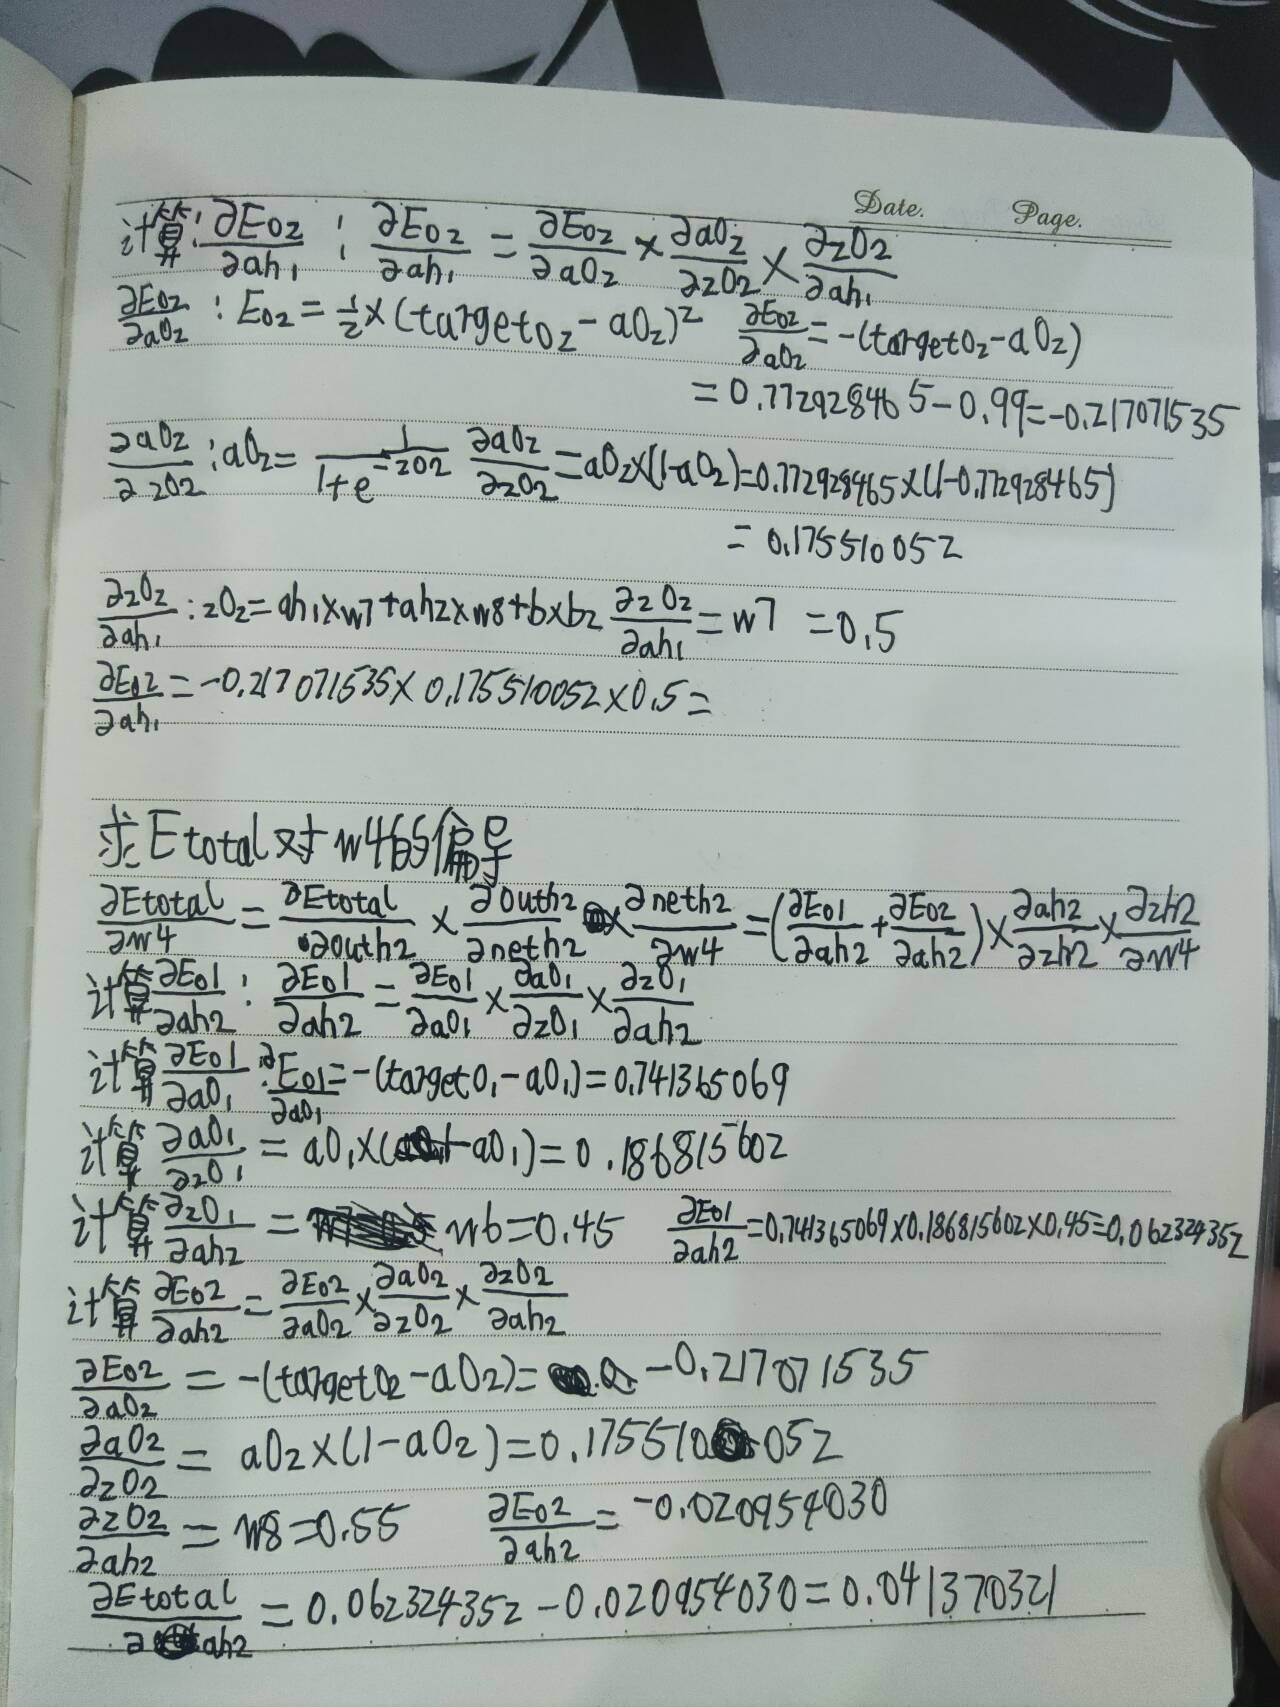 Date. Page.
计算: ∂Eo2/∂ah1 : ∂Eo2/∂ah1 = ∂Eo2/∂aO2 × ∂aO2/∂zO2 × ∂zO2/∂ah1
∂Eo2/∂aO2 : Eo2 = 1/2 × (targeto2 - aO2)² ∂Eo2/∂aO2 = -(targetO2 - aO2)
= 0.772928465 - 0.99 = -0.217071535
∂aO2/∂zO2 : aO2 = 1/(1+e^-zO2) ∂aO2/∂zO2 = aO2×(1-aO2) = 0.772928465×(1-0.772928465)
= 0.175510052
∂zO2/∂ah1 : zO2 = ah1×w7+ah2×w8+b×b2 ∂zO2/∂ah1 = w7 = 0.5
∂Eo2/∂ah1 = -0.217071535 × 0.175510052 × 0.5 =
求Etotal对w4的偏导
∂Etotal/∂w4 = ∂Etotal/∂outh2 × ∂outh2/∂neth2 × ∂neth2/∂w4 = (∂Eo1/∂ah2 + ∂Eo2/∂ah2) × ∂ah2/∂zh2 × ∂zh2/∂w4
计算 ∂Eo1/∂ah2 : ∂Eo1/∂ah2 = ∂Eo1/∂aO1 × ∂aO1/∂zO1 × ∂zO1/∂ah2
计算 ∂Eo1/∂aO1 : ∂Eo1/∂aO1 = -(targetO1 - aO1) = 0.741365069
计算 ∂aO1/∂zO1 = aO1×(1-aO1) = 0.186815602
计算 ∂zO1/∂ah2 = w6 = 0.45 ∂Eo1/∂ah2 = 0.741365069×0.186815602×0.45 = 0.062324352
计算 ∂Eo2/∂ah2 = ∂Eo2/∂aO2 × ∂aO2/∂zO2 × ∂zO2/∂ah2
∂Eo2/∂aO2 = -(targetO2 - aO2) = -0.217071535
∂aO2/∂zO2 = aO2×(1-aO2) = 0.175510052
∂zO2/∂ah2 = w8 = 0.55 ∂Eo2/∂ah2 = -0.020954030
∂Etotal/∂ah2 = 0.062324352 - 0.020954030 = 0.041370321